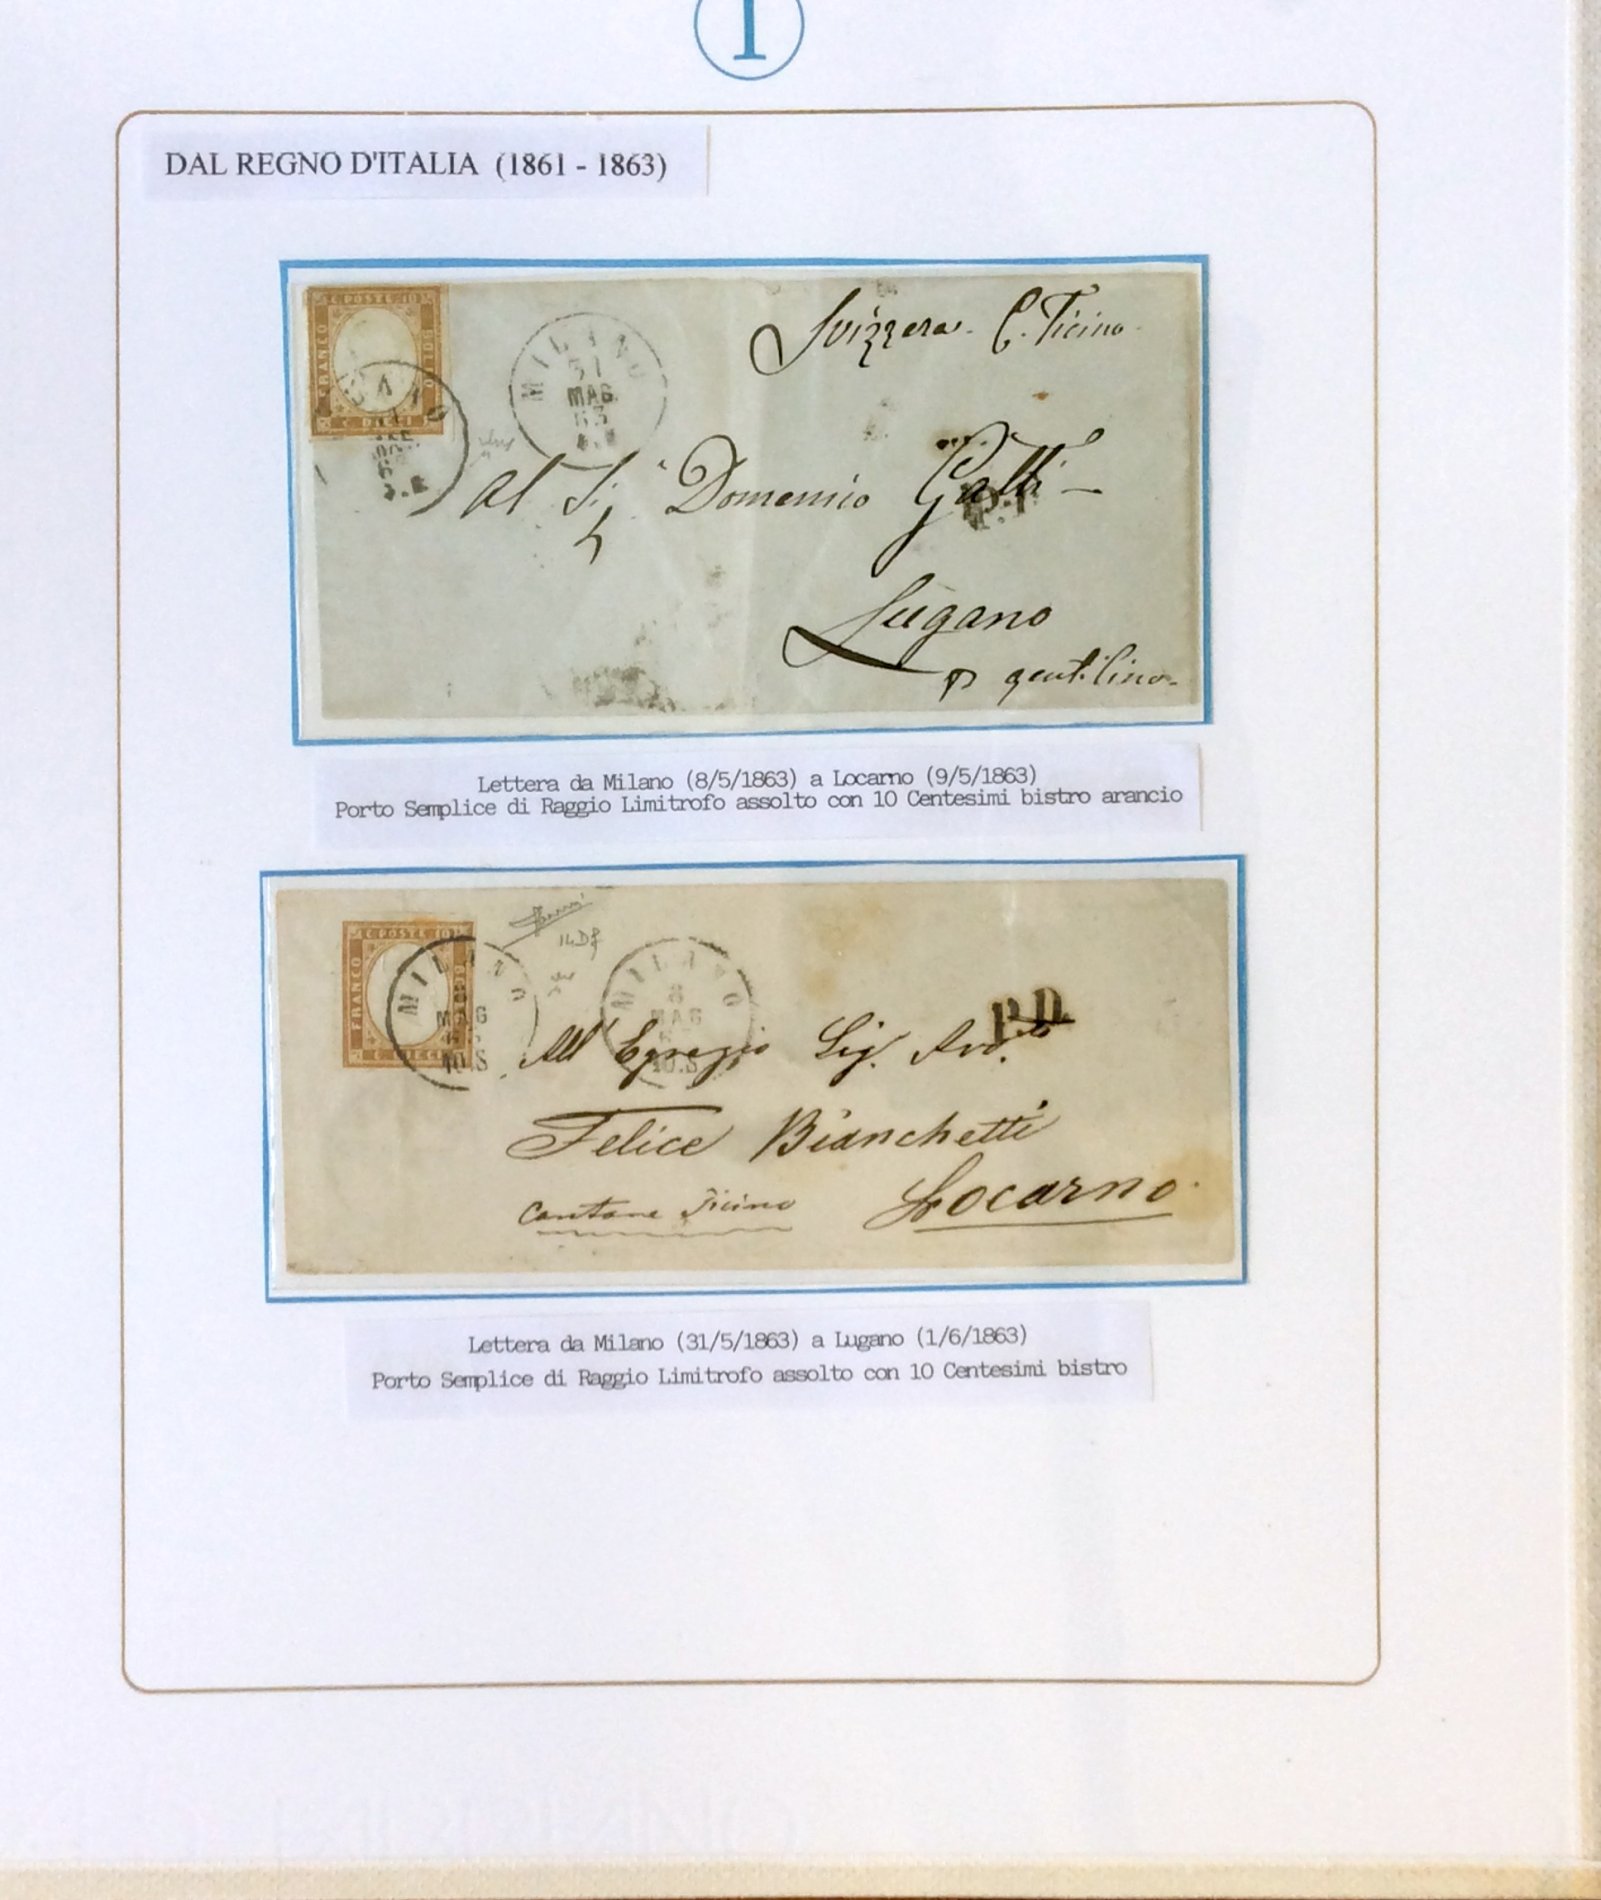 1
DAL REGNO D'ITALIA (1861 - 1863)
C. POSTE 10
FRANCO
C. DIECI
MILANO
31
MAG
63
Svizzera. C. Ticino
Al Sig Domenico Galli
Lugano
p gentilino.
Lettera da Milano (8/5/1863) a Locarno (9/5/1863)
Porto Semplice di Raggio Limitrofo assolto con 10 Centesimi bistro arancio
C. POSTE 10
FRANCO
C. DIECI
MILANO
MAG
10.S
MILANO
8
MAG
10.S
P.D.
All' Egregio Sig. Avv.to
Felice Bianchetti
Cantone Ticino Locarno.
Lettera da Milano (31/5/1863) a Lugano (1/6/1863)
Porto Semplice di Raggio Limitrofo assolto con 10 Centesimi bistro